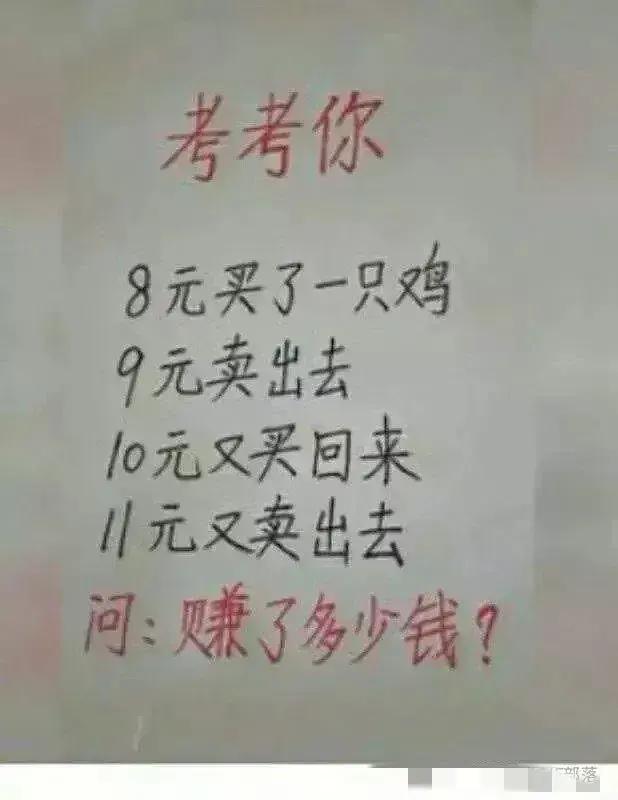 考考你
8元买了一只鸡
9元卖出去
10元又买回来
11元又卖出去
问：赚了多少钱？
部落